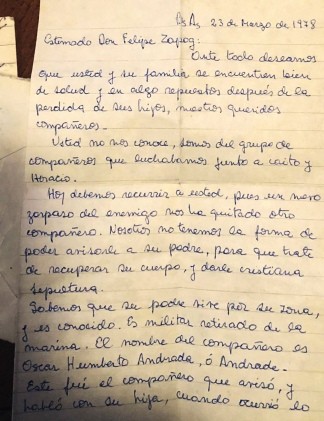 Bs As, 23 de Marzo de 1978
Estimado Don Felipe
Ante todo deseamos
que usted y su familia se encuentren bien
de salud y en algo repuestos después de la
perdida de sus hijos, nuestros queridos
compañeros.-
Usted no nos conoce, somos del grupo de
compañeros que luchabamos junto a caito y
Horacio.
Hoy debemos recurrir a usted, pues un nuevo
zarpaso del enemigo nos ha quitado otro
compañero. Nosotros no tenemos la forma de
poder avisarle a su padre, para que trate
de recuperar su cuerpo, y darle cristiana
sepultura.
Sabemos que su padre vive por su zona,
y es conocido. Es militar retirado de la
marina. El nombre del compañero es
Oscar Humberto Andrada, ó Andrade.
Este fué el compañero que avisó, y
habló con su hija, cuando ocurrió lo